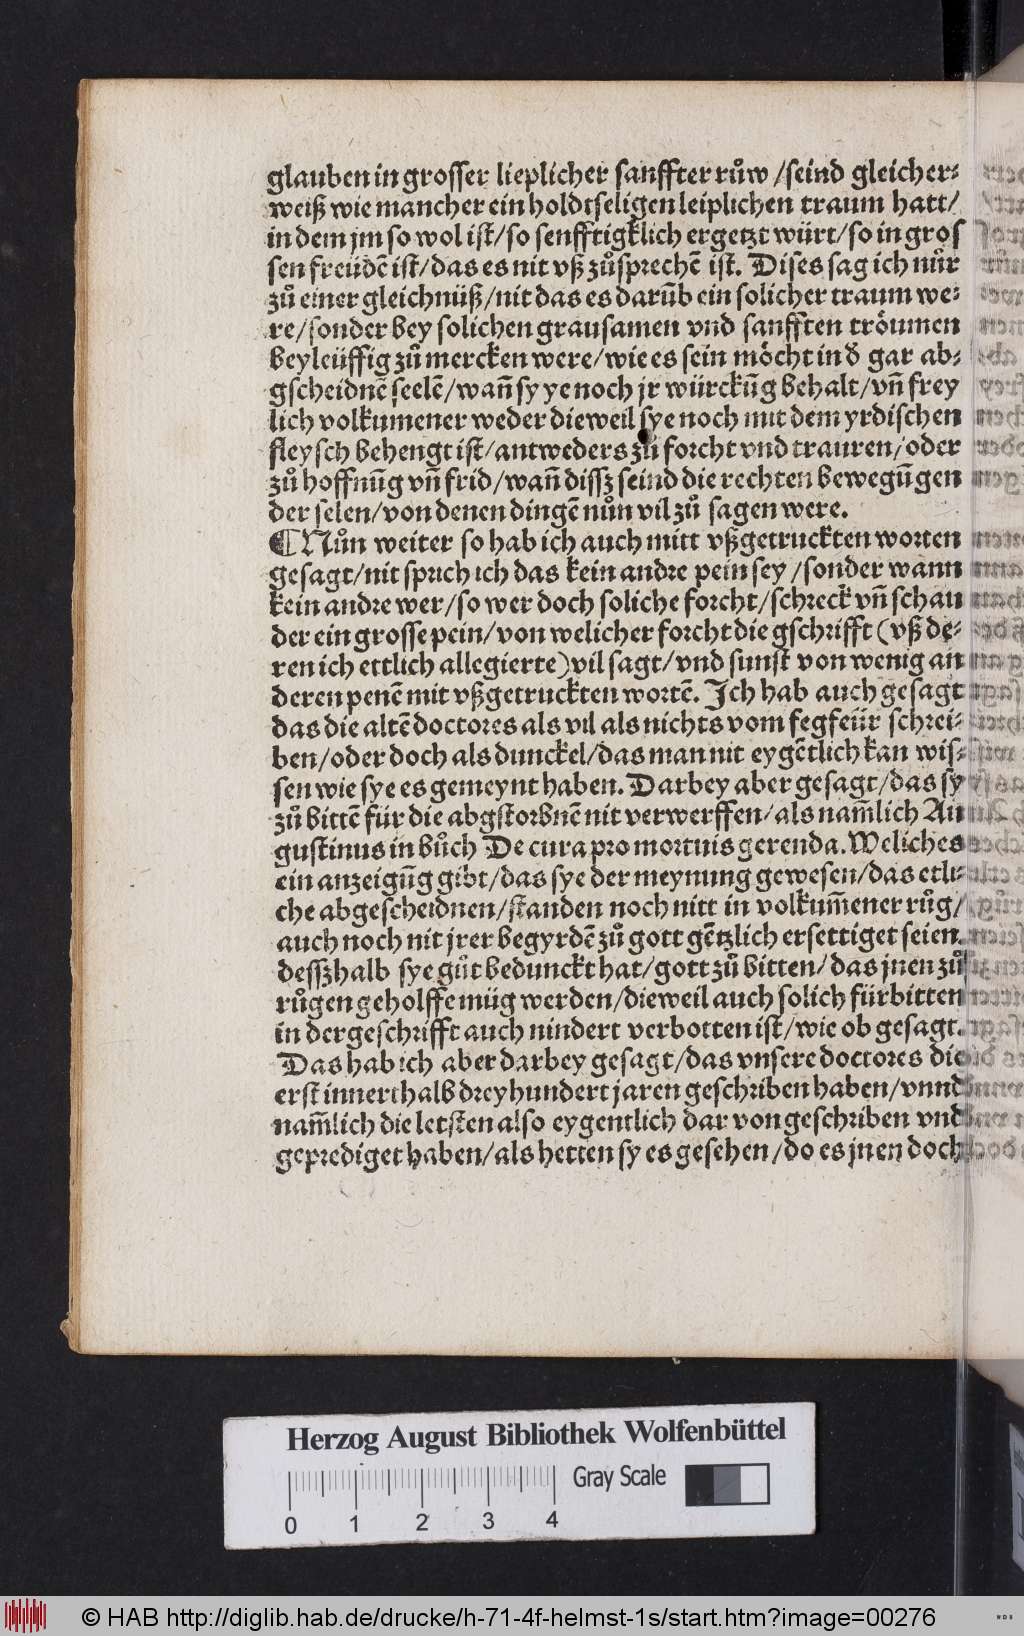 glauben in grosser lieplicher sanffter růw /seind gleicher⸗
weiß wie mancher ein holdtseligen leiplichen traum hatt/
in dem jm so wol ist/so senfftigklich ergetzt würt/so in gros
sen freüdē ist/das es nit vß zůsprechē ist. Dises sag ich nůr
zů einer gleichnüß/nit das es darūb ein solicher traum we⸗
re/sonder bey solichen grausamen vnd sanfften tröumen
beyleüffig zů mercken were/wie es sein möcht in đ gar ab⸗
gscheidnē seelē/wan̄ sy ye noch jr würckūg behalt/vn̄ frey
lich volkumener weder dieweil sye noch mit dem yrdischen
fleysch behengt ist/antweders zů forcht vnd trauren/oder
zů hoffnūg vn̄ frid/wan̄ dissz seind die rechten bewegūgen
der selen/von denen dingē nůn vil zů sagen were.
¶Nůn weiter so hab ich auch mitt vßgetruckten worten
gesagt/nit sprich ich das kein andre pein sey /sonder wann
kein andre wer/so wer doch soliche forcht/schreck vn̄ schau
der ein grosse pein/von welicher forcht die gschrifft (vß de⸗
ren ich ettlich allegierte) vil sagt/vnd sunst von wenig an
deren penē mit vßgetruckten wortē. Ich hab auch gesagt
das die altē doctores als vil als nichts vom fegfeür schrei⸗
ben/oder doch als dunckel/das man nit eygētlich kan wis⸗
sen wie sye es gemeynt haben. Darbey aber gesagt/das sy
zů bittē für die abgstorbnē nit verwerffen/als nam̄lich Au
gustinus in bůch De cura pro mortuis gerenda. Weliches
ein anzeigūg gibt/das sye der meynung gewesen/das etli⸗
che abgescheidnen/standen noch nitt in volkum̄ener růg/
auch noch nit jrer begyrdē zů gott gētzlich ersettiget seien.
desszhalb sye gůt bedunckt hat/gott zů bitten/das jnen zů
růgen geholffē müg werden/dieweil auch solich fürbitten
in der geschrifft auch nindert verbotten ist/wie ob gesagt.
Das hab ich aber darbey gesagt/das vnsere doctores die
erst innerthalb drey hundert jaren geschriben haben/vnnd
nam̄lich die letsten also eygentlich dar von geschriben vnd
geprediget haben/als hetten sy es gesehen/do es jnen doch
Herzog August Bibliothek Wolfenbüttel
Gray Scale
0 1 2 3 4
© HAB http://diglib.hab.de/drucke/h-71-4f-helmst-1s/start.htm?image=00276